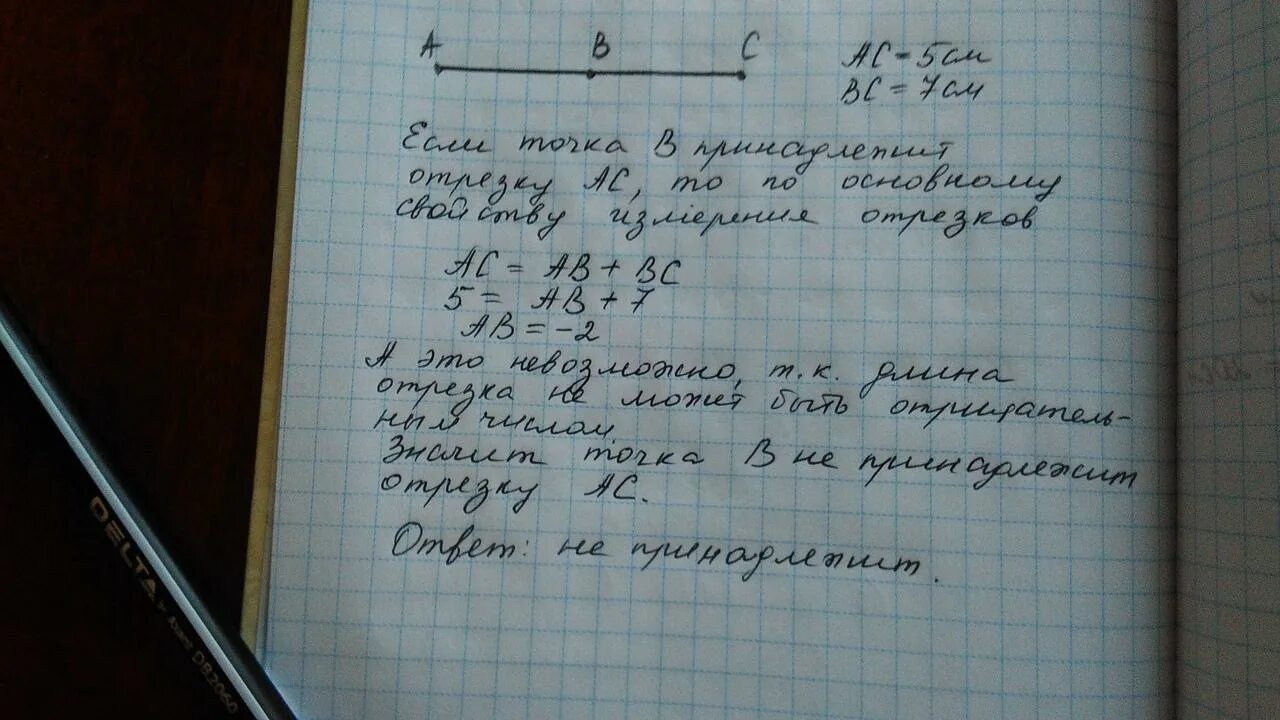 A B C
AC = 5 см
BC = 7 см
Если точка B принадлежит
отрезку AC, то по основному
свойству измерения отрезков
AC = AB + BC
5 = AB + 7
AB = -2
А это невозможно, т.к. длина
отрезка не может быть отрицатель-
ным числом.
Значит точка B не принадлежит
отрезку AC.
Ответ: не принадлежит.
DELTA
DB2060